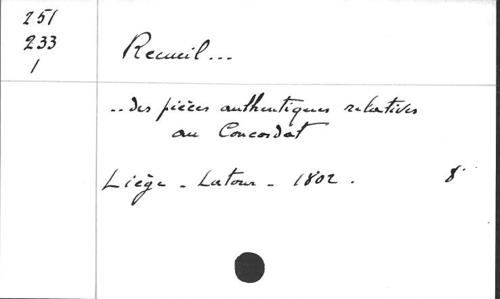 251
233
1
Recueil...
..des pièces authentiques relatives
au Concordat
Liège - Latour - 1802. 8°